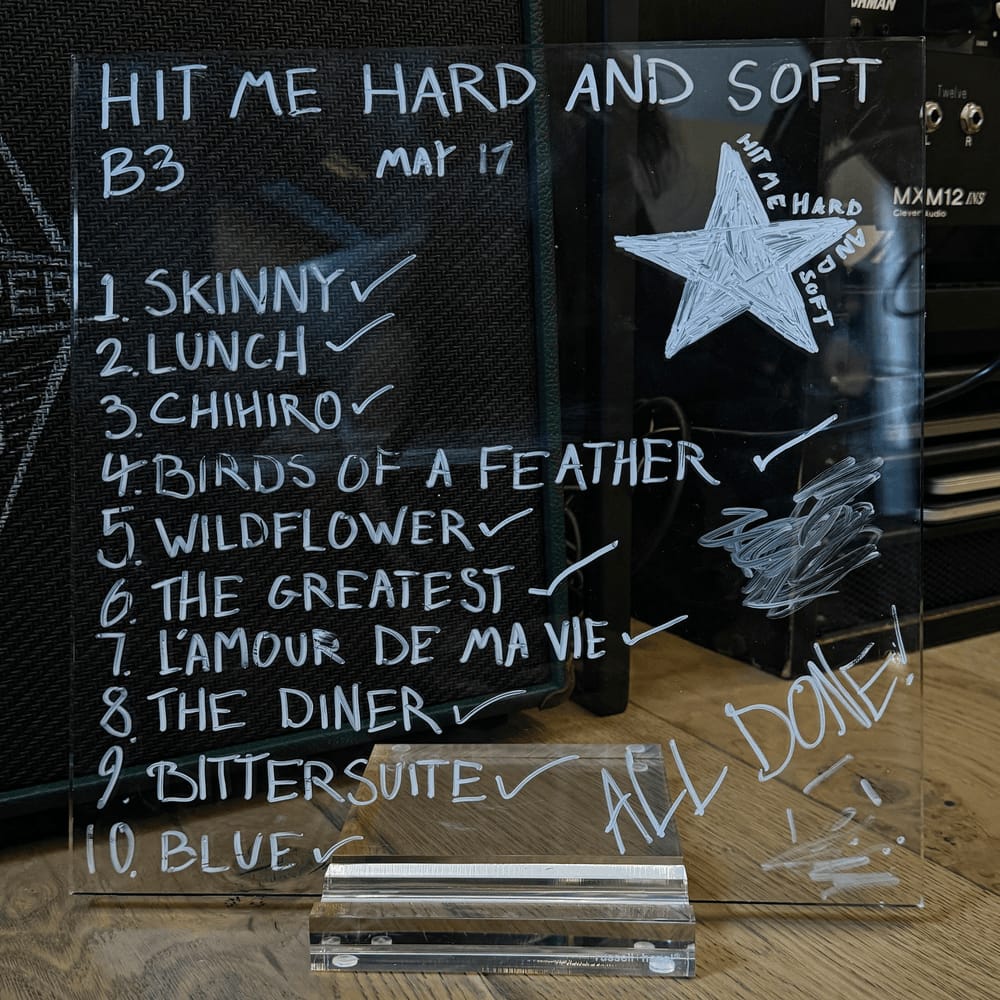 HIT ME HARD AND SOFT
B3
MAY 17
HIT ME HARD AND SOFT
1. SKINNY ✓
2. LUNCH ✓
3. CHIHIRO ✓
4. BIRDS OF A FEATHER ✓
5 WILDFLOWER ✓
6. THE GREATEST ✓
7. L'AMOUR DE MA VIE ✓
8. THE DINER ✓
9. BITTERSUITE ✓
10. BLUE ✓
ALL DONE!
Twelve
L R
MXM12 INS
Clever Audio